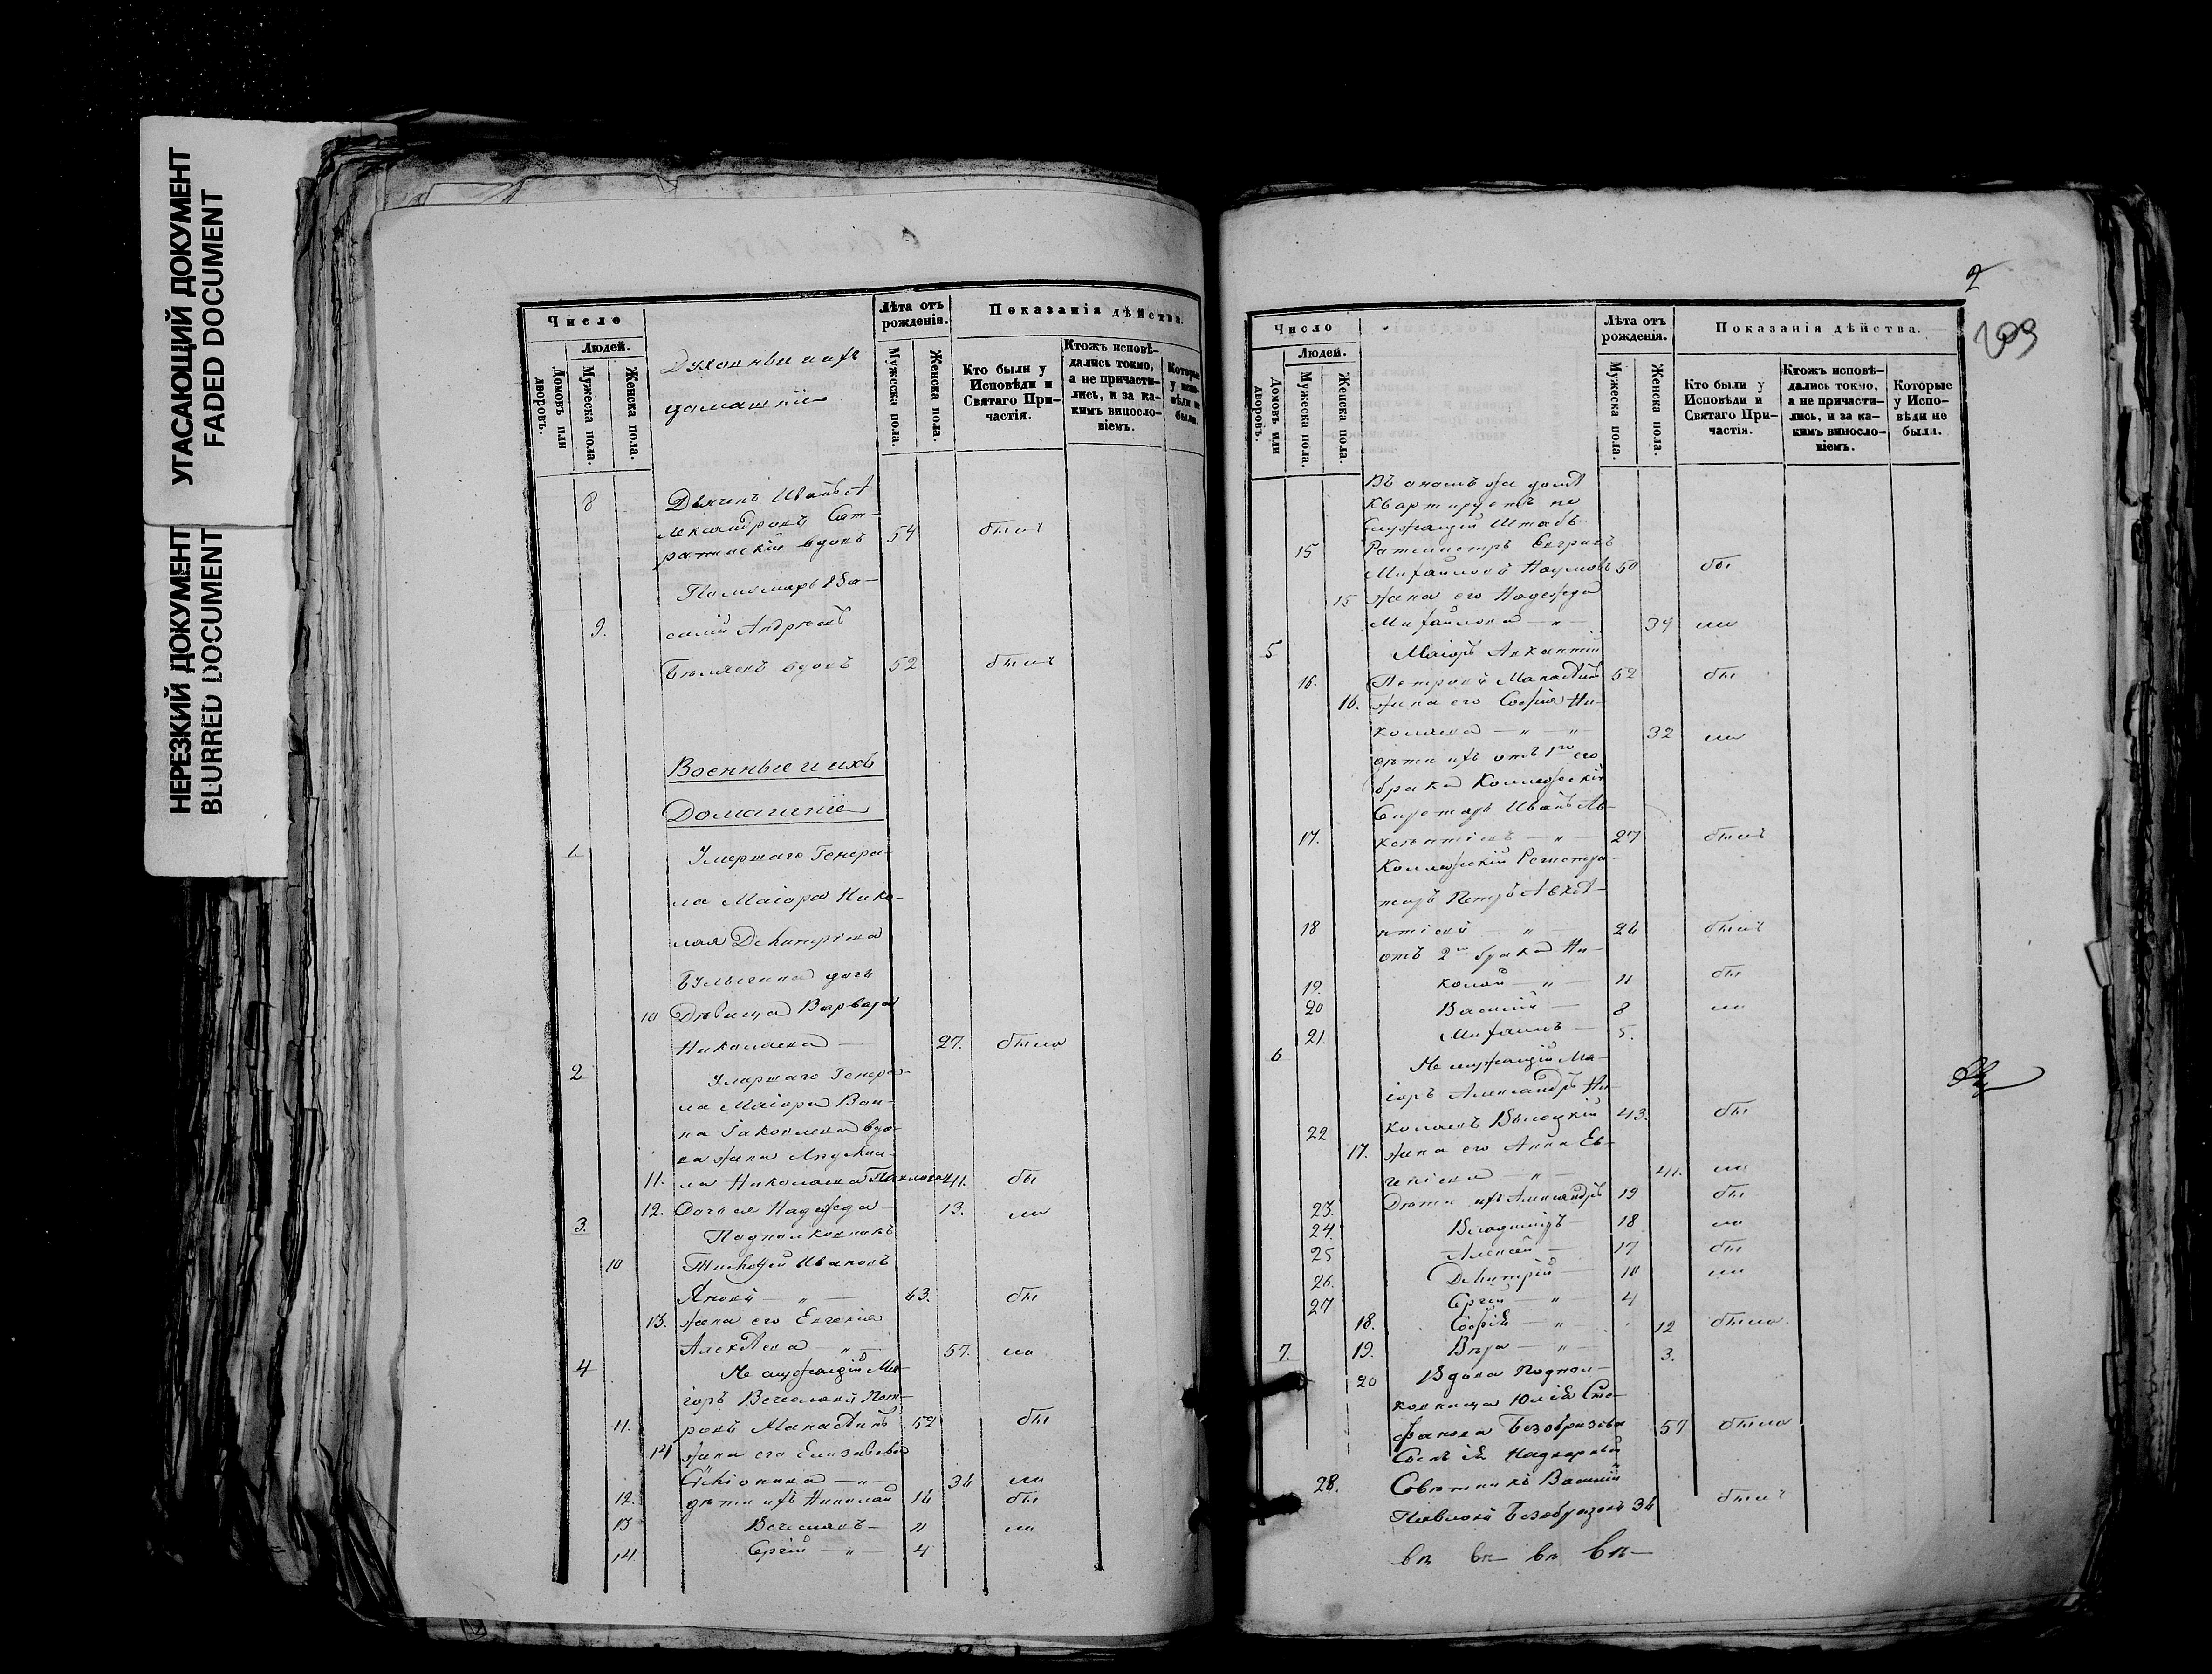 УГАСАЮЩИЙ ДОКУМЕНТ
FADED DOCUMENT
НЕРЕЗКИЙ ДОКУМЕНТ
BLURRED DOCUMENT
Число
Людей.
Домовъ или дворовъ.
Мужеска пола.
Женска пола.
домашніе
Лѣта отъ рожденія.
Мужеска пола.
Женска пола.
Показанія дѣйства.
Кто были у Исповѣди и Святаго Причастія.
Ктожъ исповѣдались токмо, а не причастились, и за какимъ винословіемъ.
Которые у испо-вѣди не были.
8 Дьячекъ Иванъ А-
лександровъ
вдовъ 54 былъ
Пономарь Ва-
9. силій Андреевъ
Бѣляевъ вдовъ 52 былъ
Военные и ихъ
Домашніе
1 Умершаго Генера-
ла Маіора Нико-
лая Дмитріева
Булыгина дочь
10 Дѣвица Варвара
Николаева — 27. была
2 Умершаго Генера-
ла Маіора
на Іаковлева вдо-
ва жена Людми-
11. ла Николаева 41. бы
12. Дочь ея Надежда 13. ли
3. Подполковникъ
10 Тимофей Ивановъ
— " — 63. бы
13. жена его Евгенія
Алексѣева — " — 57. ли
4 Не служащій Ма-
іоръ Вечеславъ Пет-
11. ровъ 52 бы
14 жена его Елизавета
— " — 36 ли
12. дѣти ихъ Николай 16 бы
13 Вечеславъ — 11 ли
14 Сергій — " — 4
2
203
Число
Людей.
Домовъ или дворовъ.
Мужеска пола.
Женска пола.
Лѣта отъ рожденія.
Мужеска пола.
Женска пола.
Показанія дѣйства.
Кто были у Исповѣди и Святаго Причастія.
Ктожъ исповѣдались токмо, а не причастились, и за какимъ винословіемъ.
Которые у Исповѣди не были.
Въ ономъ же домѣ
квартируетъ не
служащій Штабъ-
15 Ротмистръ
Михайловъ Наумовъ 50 бы
15 жена его Надежда
Михайлова — " — 39 ли
5 Маіоръ
16. Петровъ 52 бы
16. жена его Софія Ни-
колаева — " — " — 32 ли
дѣти ихъ отъ 1го его
брака Коллежскій
Секретарь Иванъ Ав-
17. ксентіевъ — " — 27 былъ
Коллежскій Регистра-
торъ Петръ Авксе-
18 нтіевъ — " — 26 былъ
отъ 2го брака Ни-
19. колай — " — 11 бы
20 Василій — 8 ли
21. Михаилъ — 5.
6 Не служащій Ма-
іоръ Александръ Ни-
22 колаевъ 43. бы
17. жена его Анна Ев-
геніева — " — 41. ли
23. Дѣти ихъ Александръ 19 бы
24. Владиміръ — 18 ли
25 Алексѣй — 17 бы
26. Дмитрій — 10 ли
27 Сергій — " — 4
18. Софія — " — 12 была
19. Вѣра — " — 3.
7. 20 Вдова Подпол-
ковница Юлія Сте-
фанова Безобразова 57 была
Сынъ ея Надворный
28. Совѣтникъ Василій
Павловъ Безобразовъ 36 былъ